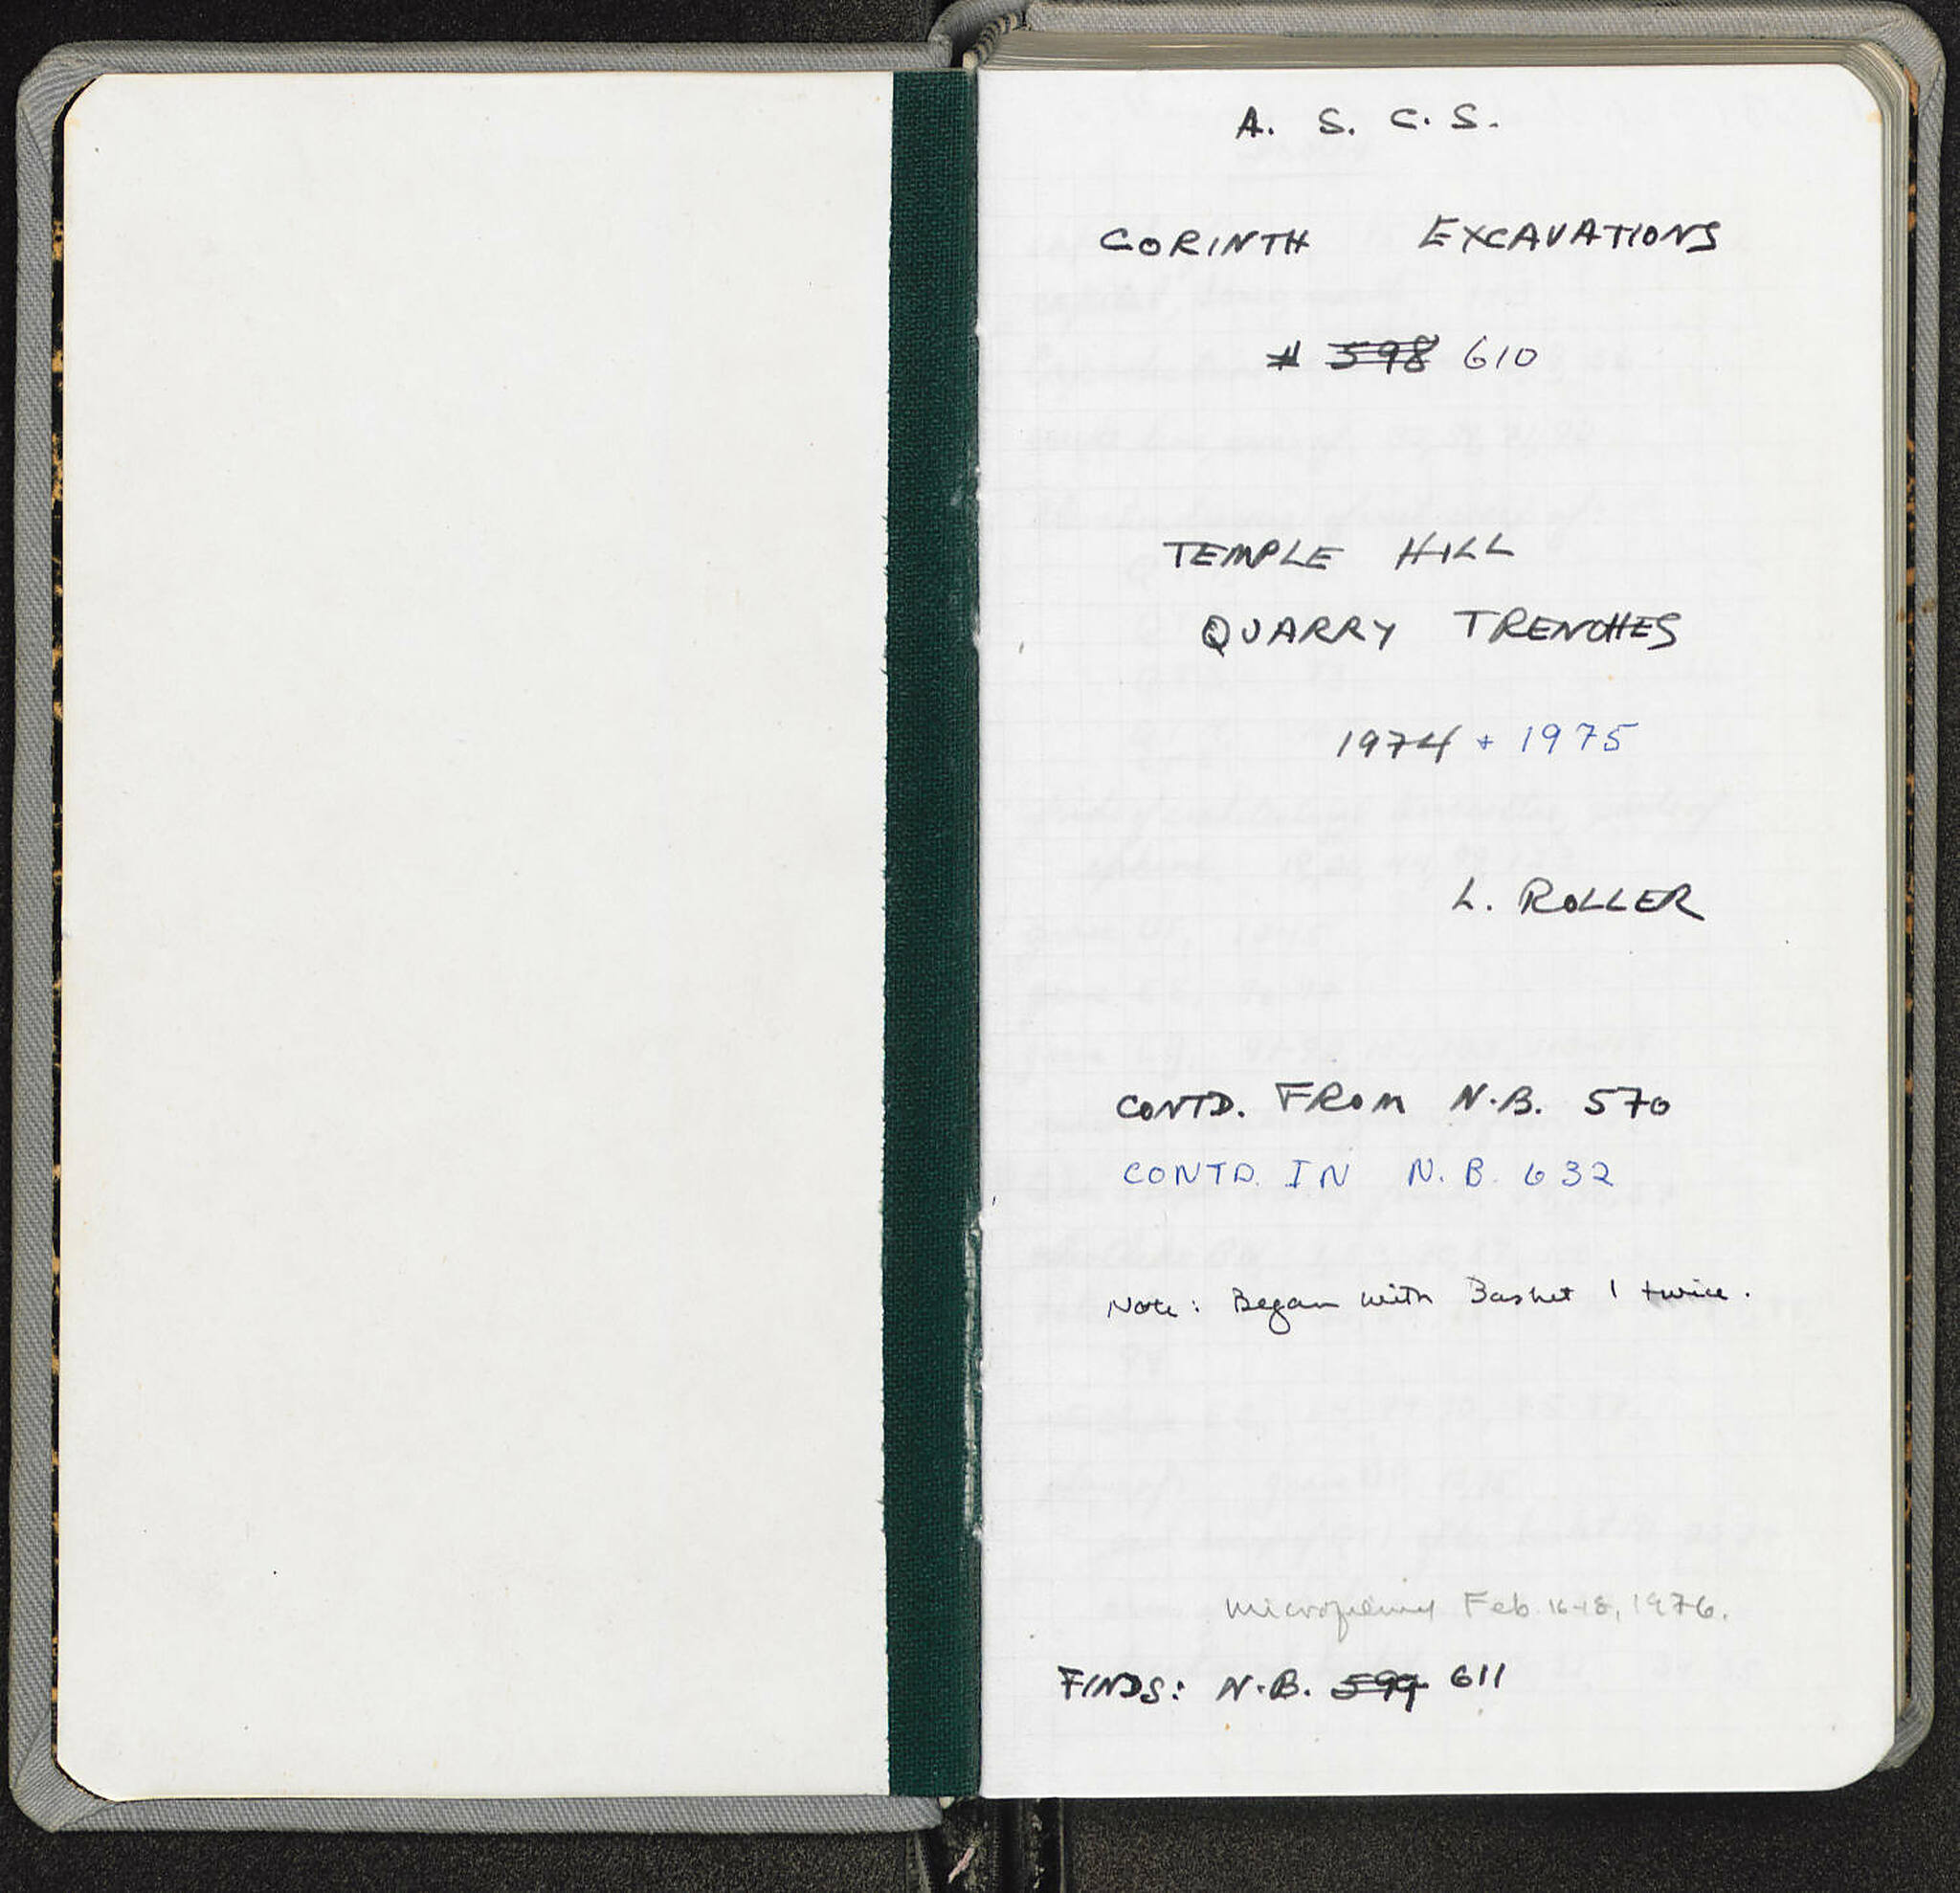 A. S. C. S.
CORINTH EXCAVATIONS
# 598 610
TEMPLE HILL
QUARRY TRENCHES
1974 + 1975
L. ROLLER
CONTD. FROM N.B. 570
CONTD. IN N.B. 632
Note: Began with Basket 1 twice.
Microfilmed Feb. 16-18, 1976.
FINDS: N.B. 599 611